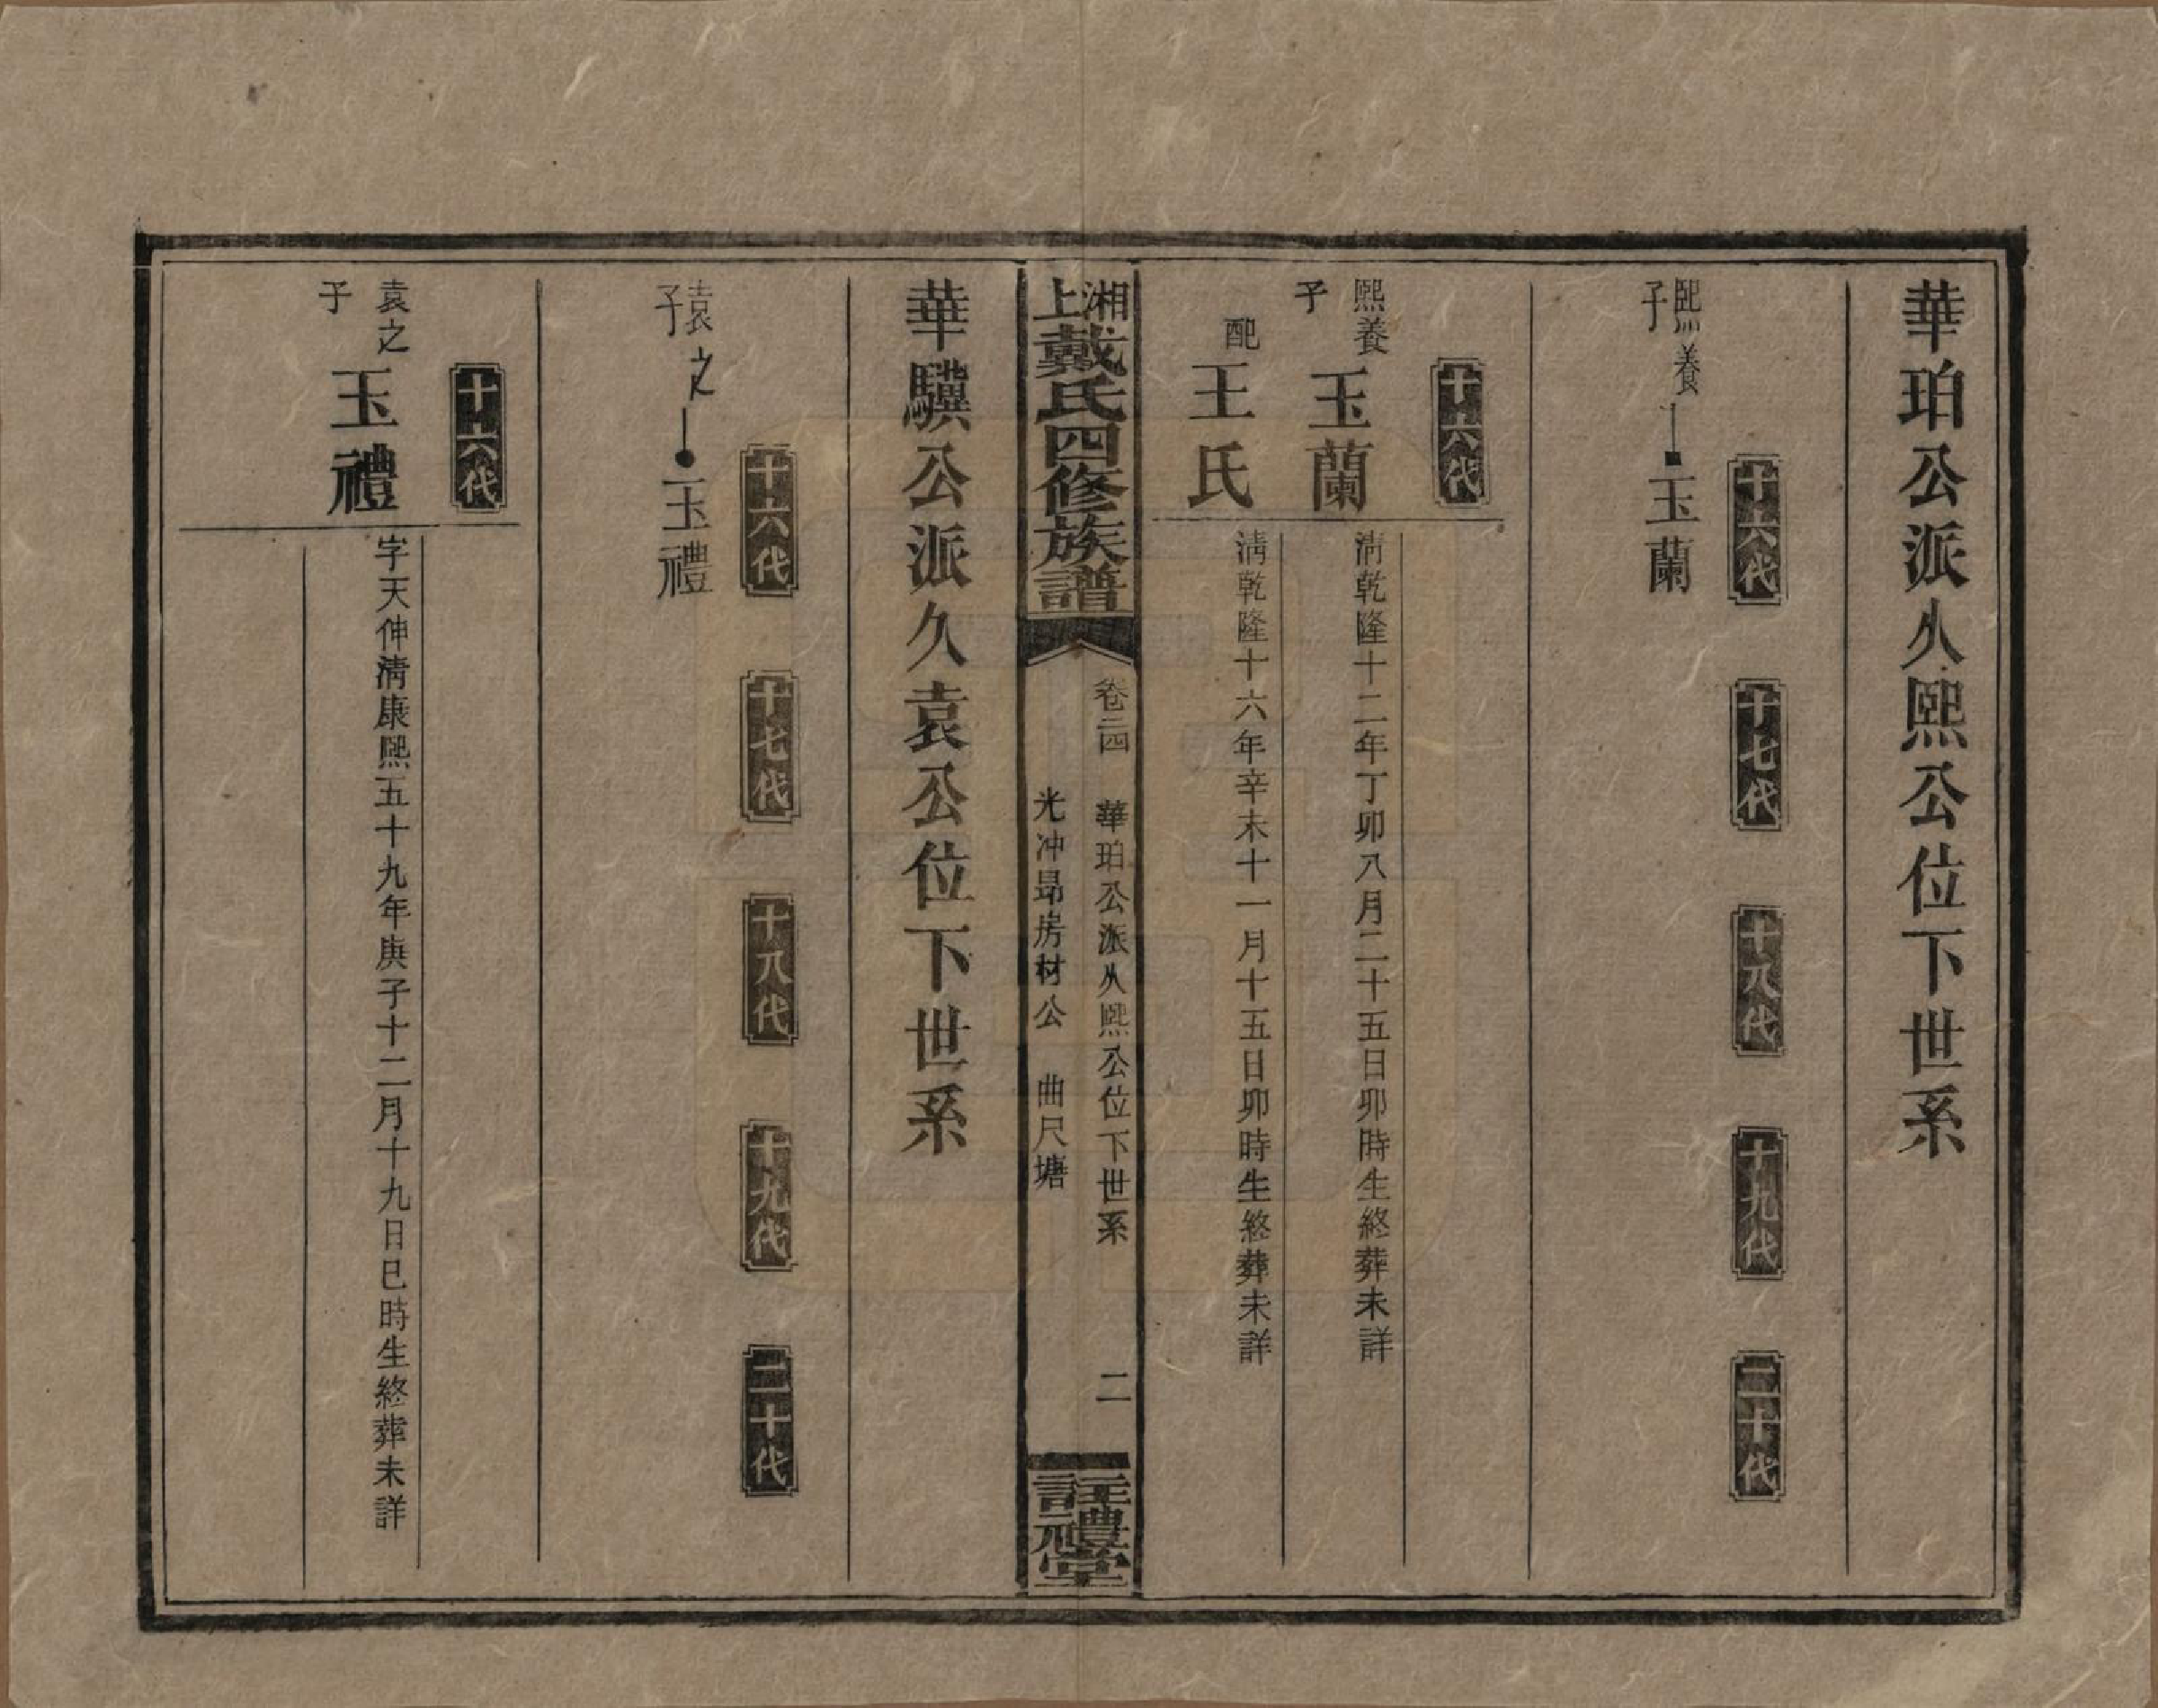 華珀公派久熙公位下世系
十六代 十七代 十八代 十九代 二十代
熙養子 玉蘭
十六代
熙養子 玉蘭 清乾隆十二年丁卯八月二十五日卯時生終葬未詳
配 王氏 清乾隆十六年辛未十一月十五日卯時生終葬未詳
湘上戴氏四修族譜
卷二四 華珀公派久熙公位下世系 二
光冲昻房材公 曲尺塘
註禮堂
華驥公派久袁公位下世系
十六代 十七代 十八代 十九代 二十代
袁之子 玉禮
十六代
袁之子 玉禮 字天伸清康熙五十九年庚子十二月十九日巳時生終葬未詳